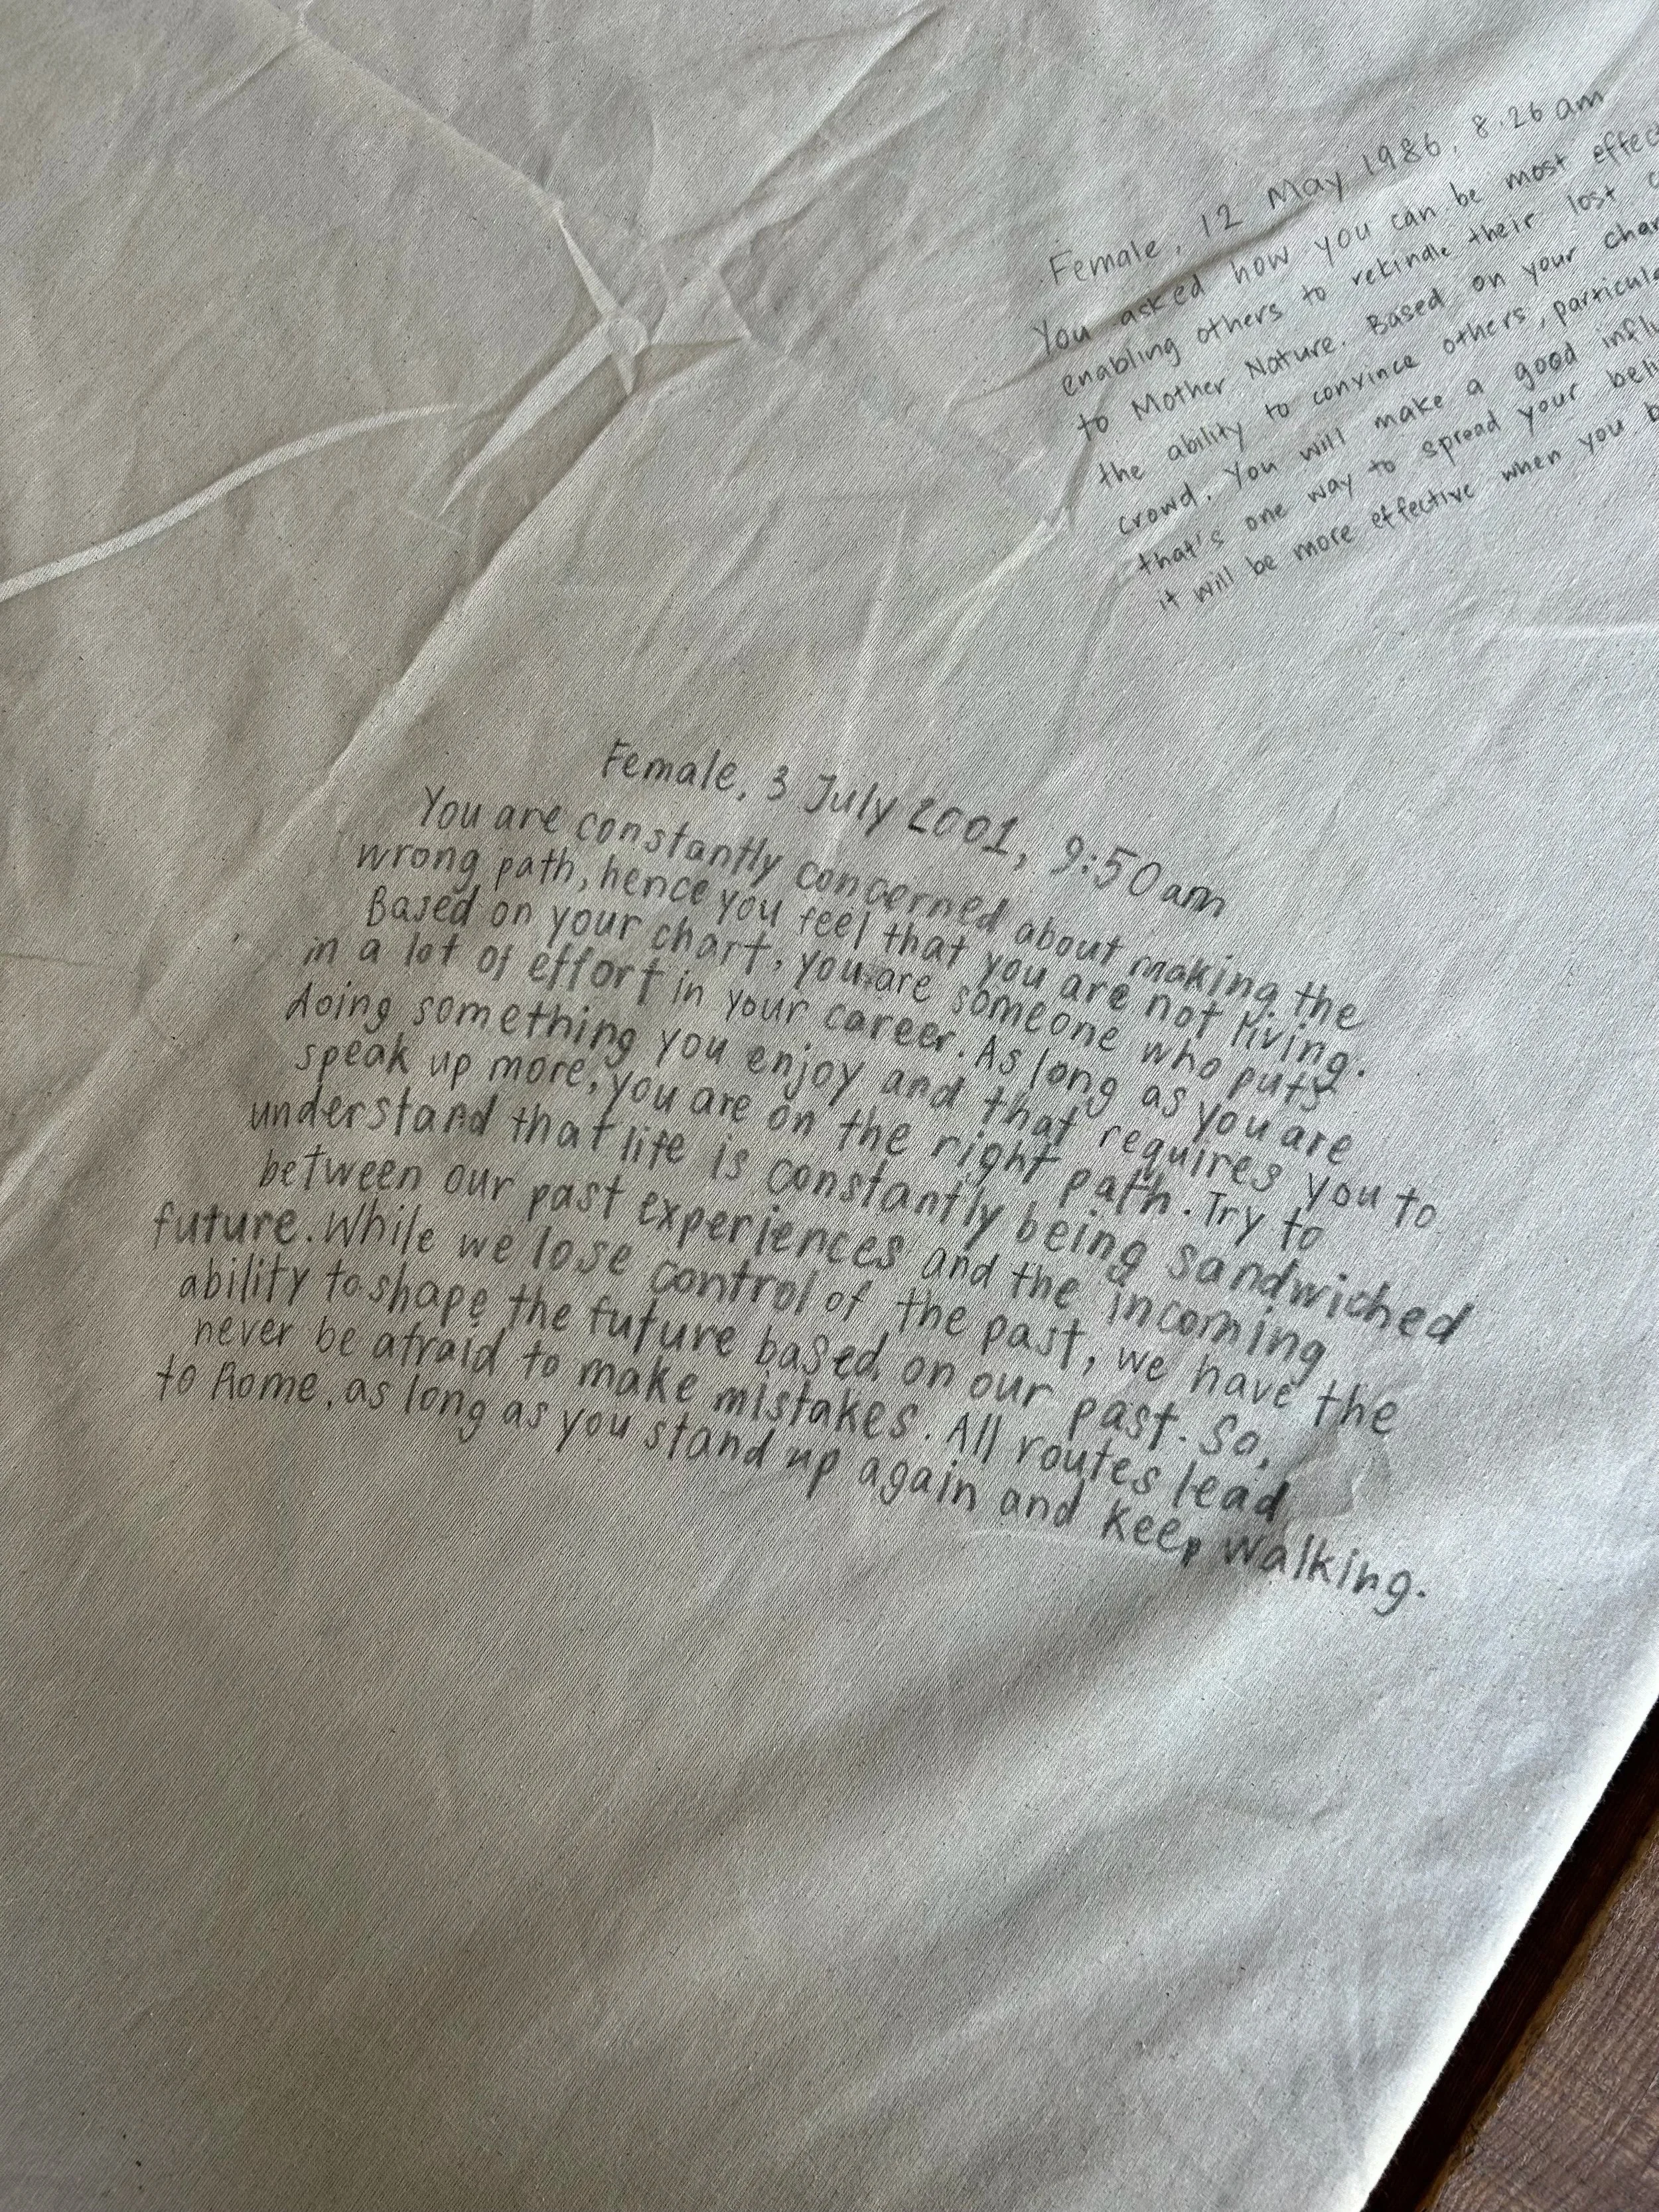 Female, 12 May 1986, 8.26 am
You asked how you can be most
enabling others to rekindle their lost
to Mother Nature. Based on your
the ability to convince others,
crowd. You will make a good
that's one way to spread your
it will be more effective when you
Female, 3 July 2001, 9:50 am
You are constantly concerned about making the
wrong path, hence you feel that you are not living.
Based on your chart, you are someone who puts
in a lot of effort in your career. As long as you are
doing something you enjoy and that requires you to
speak up more, you are on the right path. Try to
understand that life is constantly being sandwiched
between our past experiences and the incoming
future. While we lose control of the past, we have the
ability to shape the future based on our past. So,
never be afraid to make mistakes. All routes lead
to Rome, as long as you stand up again and keep walking.